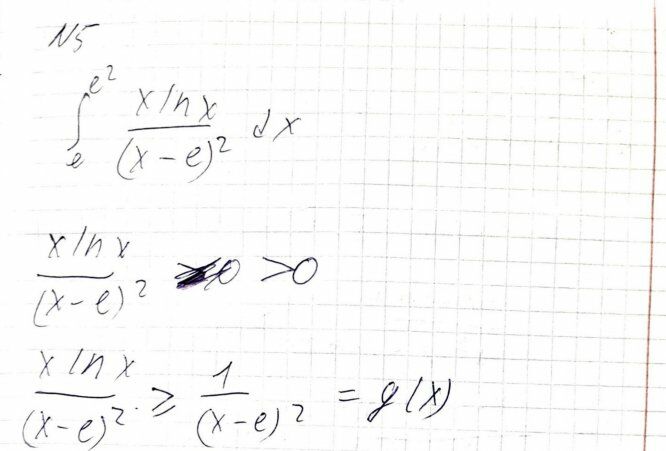 N5
∫_e^{e^2} \frac{x ln x}{(x-e)^2} dx
\frac{x ln x}{(x-e)^2} >0
\frac{x ln x}{(x-e)^2} ≥ \frac{1}{(x-e)^2} = g(x)